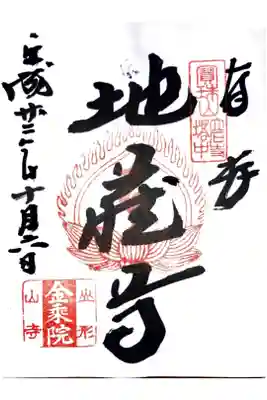 奉拝
寳珠山
立石寺
塔中
地蔵尊
平成廿二年十月六日
山形
金乘院
山寺